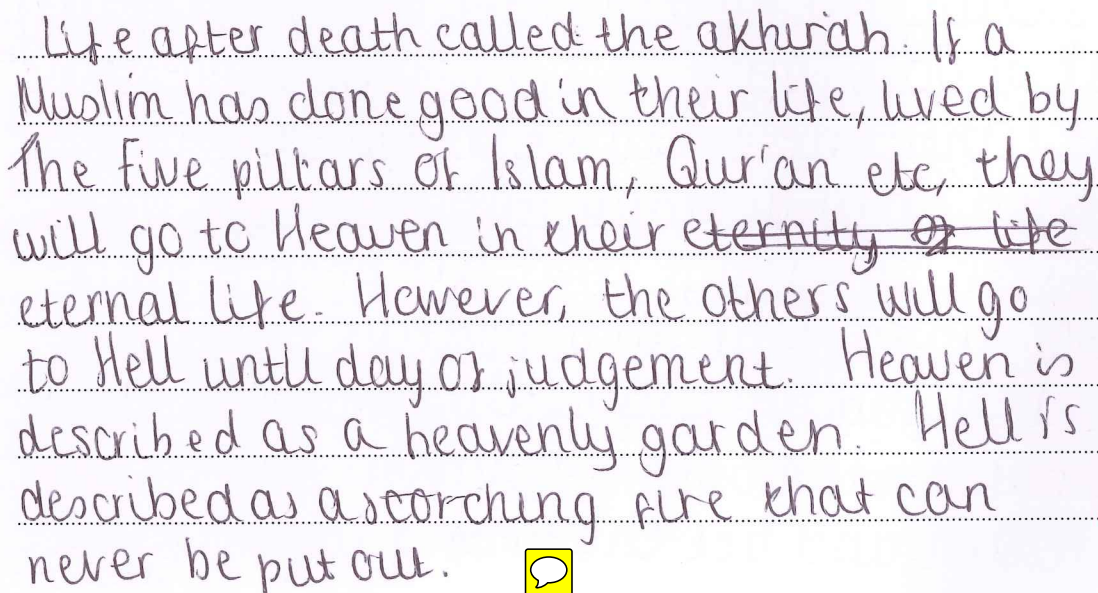 Life after death called the akhirah. If a
Muslim has done good in their life, lived by
The five pillars of Islam, Qur'an etc, they
will go to Heaven in their eternity of life
eternal life. However, the others will go
to Hell until day of judgement. Heaven is
described as a heavenly garden. Hell is
described as a scorching fire that can
never be put out.